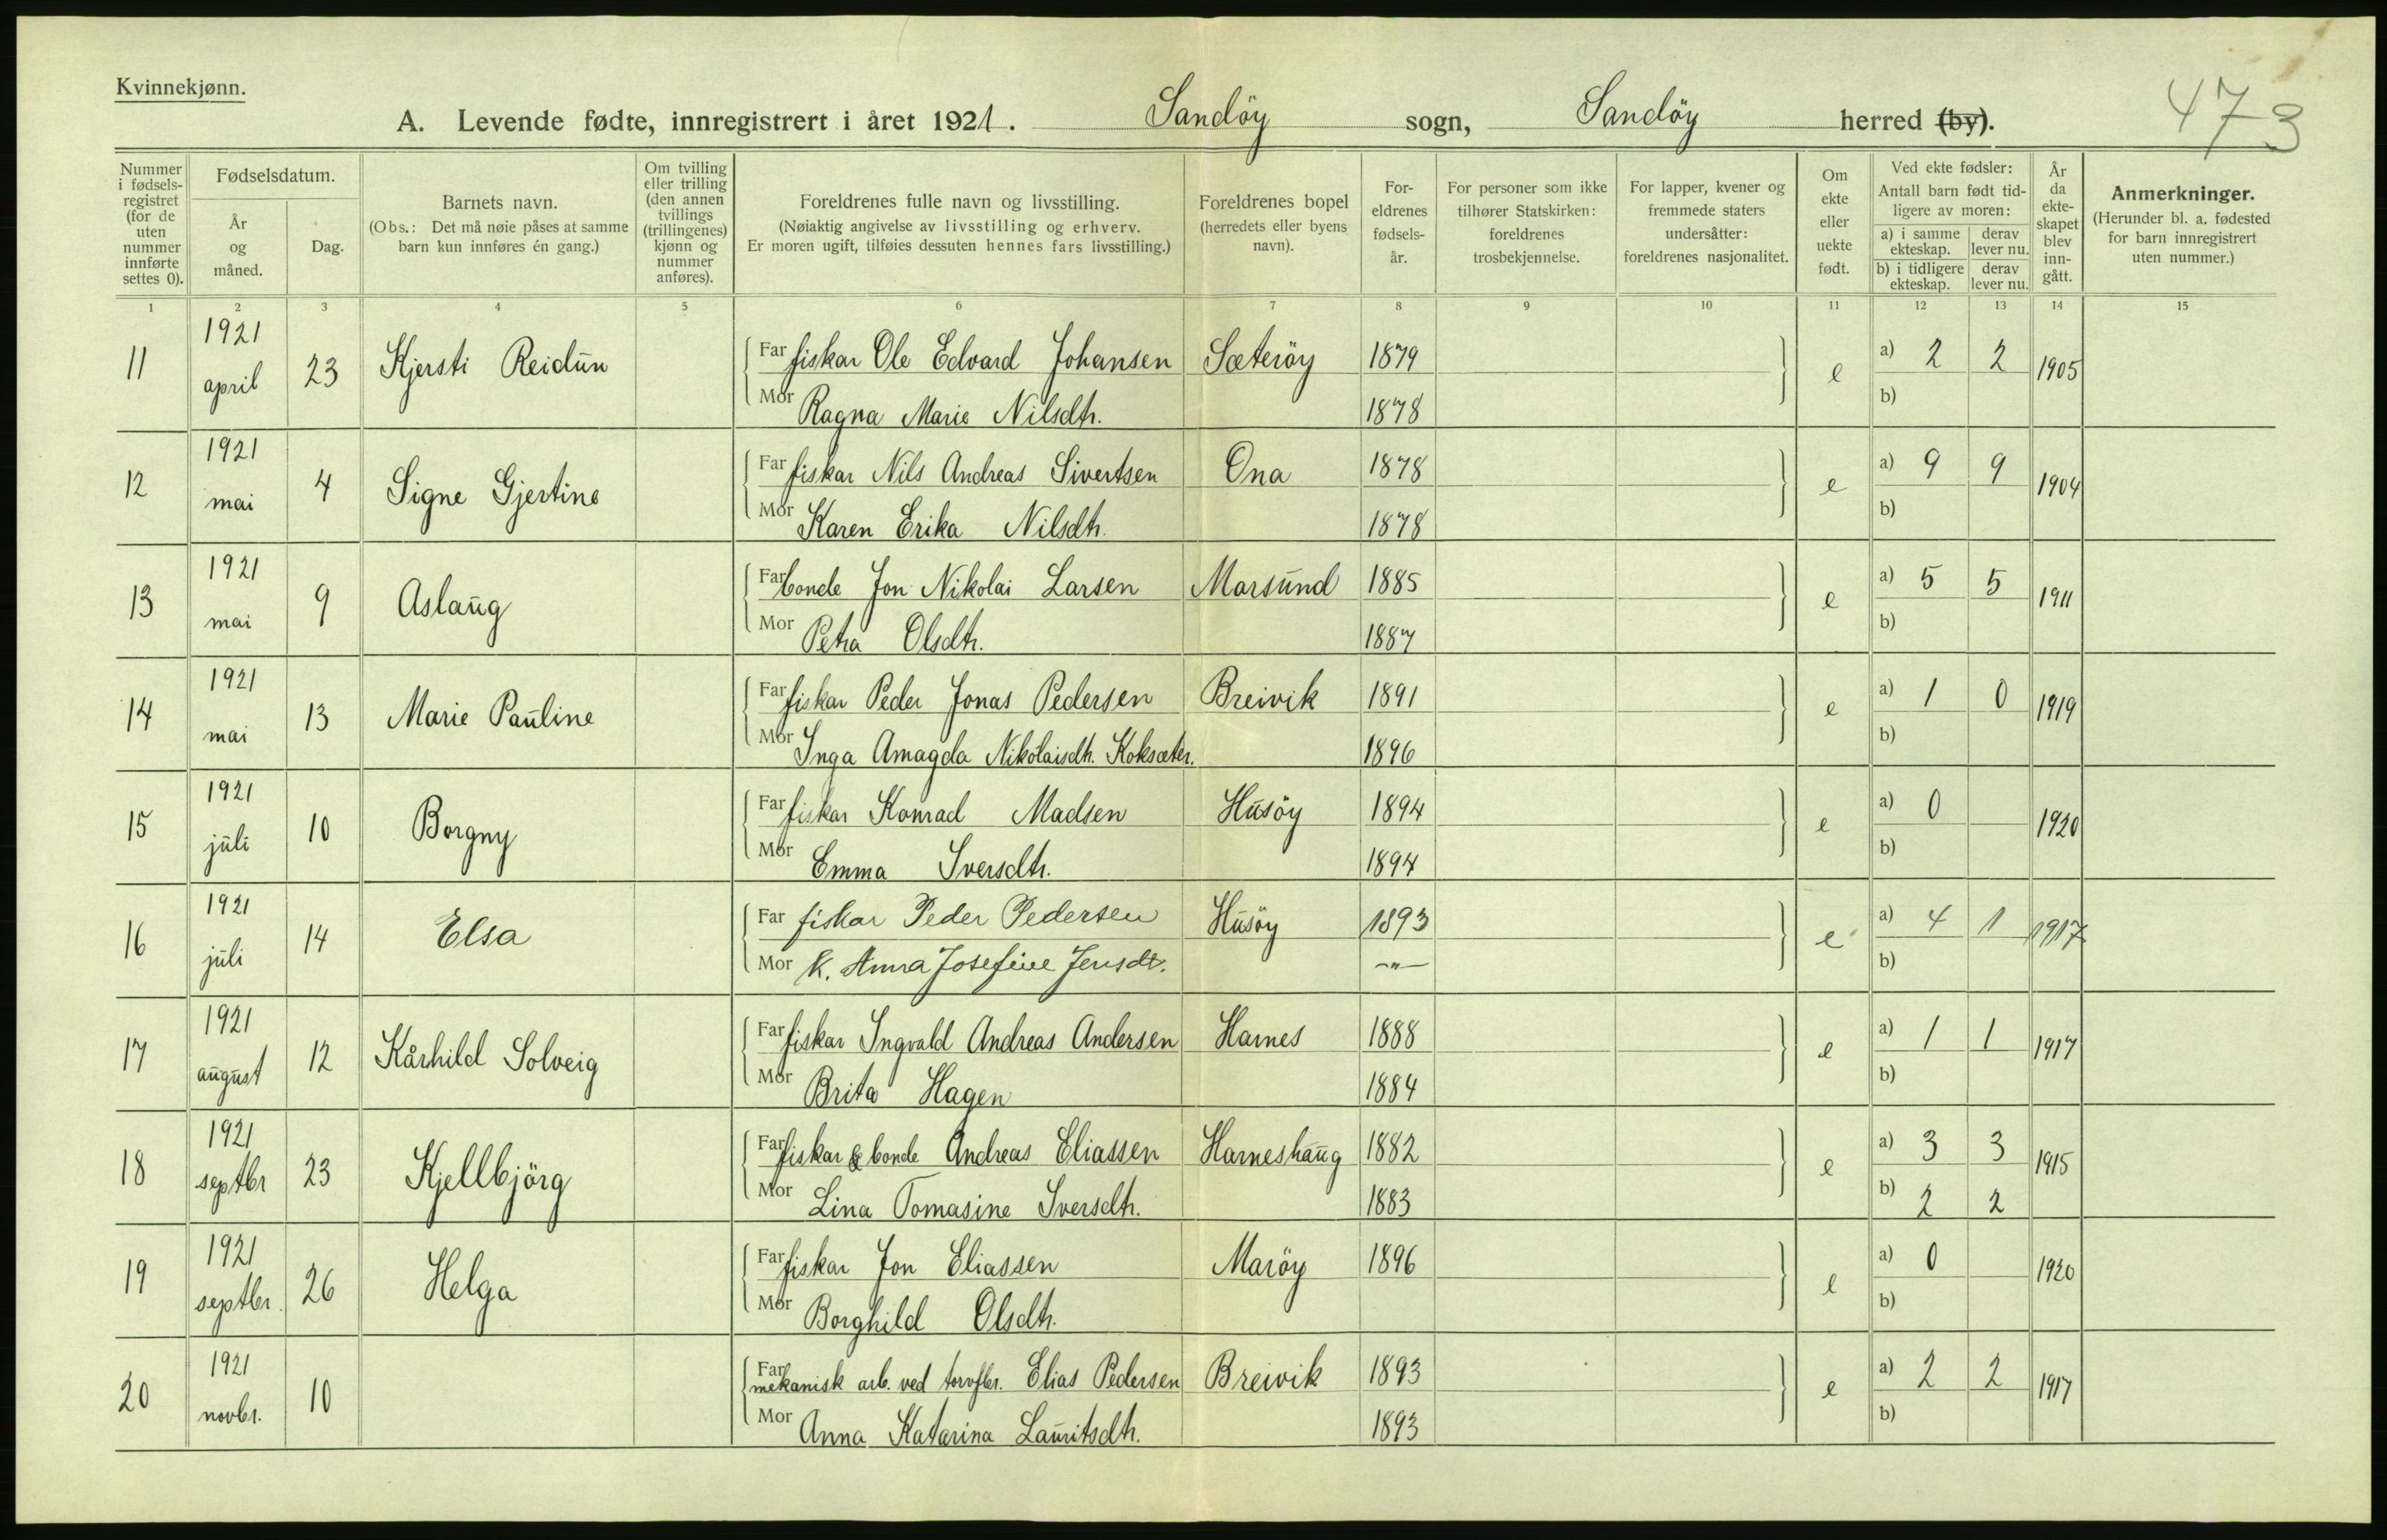 Kvinnekjønn.
A. Levende fødte, innregistrert i året 1921. Sandöy sogn, Sandöy herred (by).
473
Nummer i fødsels-registret (for de uten nummer innførte settes 0).
Fødselsdatum.
År og måned.
Dag.
Barnets navn.
(Obs.: Det må nøie påses at samme barn kun innføres én gang.)
Om tvilling eller trilling (den annen tvillings (trillingenes) kjønn og nummer anføres).
Foreldrenes fulle navn og livsstilling.
(Nøiaktig angivelse av livsstilling og erhverv.
Er moren ugift, tilføies dessuten hennes fars livsstilling.)
Foreldrenes bopel
(herredets eller byens navn).
For-eldrenes fødsels-år.
For personer som ikke tilhører Statskirken: foreldrenes trosbekjennelse.
For lapper, kvener og fremmede staters undersåtter: foreldrenes nasjonalitet.
Om ekte eller uekte født.
Ved ekte fødsler:
Antall barn født tid-ligere av moren:
a) i samme ekteskap. derav lever nu.
b) i tidligere ekteskap. derav lever nu.
År da ekte-skapet blev inn-gått.
Anmerkninger.
(Herunder bl. a. fødested for barn innregistrert uten nummer.)
1 2 3 4 5 6 7 8 9 10 11 12 13 14 15
11 1921 april 23 Kjersti Reidun Far fiskar Ole Edvard Johansen Sæteröy 1879 e a) 2 2 1905
Mor Ragna Marie Nilsdtr. 1878 b)
12 1921 mai 4 Signe Gjertine Far fiskar Nils Andreas Sivertsen Ona 1878 e a) 9 9 1904
Mor Karen Erika Nilsdtr. 1878 b)
13 1921 mai 9 Aslaug Far bonde Jon Nikolai Larsen Marsund 1885 e a) 5 5 1911
Mor Petra Olsdtr. 1887 b)
14 1921 mai 13 Marie Pauline Far fiskar Peder Jonas Pedersen Breivik 1891 e a) 1 0 1919
Mor Inga Amagda Nikolaisdtr. Koksæter. 1896 b)
15 1921 juli 10 Borgny Far fiskar Konrad Madsen Husöy 1894 e a) 0 1920
Mor Emma Iversdtr. 1894 b)
16 1921 juli 14 Elsa Far fiskar Peder Pedersen Husöy 1893 e a) 4 1 1917
Mor K. Anna Josefine Jensdt. —"— b)
17 1921 august 12 Kårhild Solveig Far fiskar Ingvald Andreas Andersen Harnes 1888 e a) 1 1 1917
Mor Brita Hagen 1884 b)
18 1921 septbr 23 Kjellbjörg Far fiskar & bonde Andreas Eliassen Harneshaug 1882 e a) 3 3 1915
Mor Lina Tomasine Iversdtr. 1883 b) 2 2
19 1921 septbr. 26 Helga Far fiskar Jon Eliassen Maröy 1896 e a) 0 1920
Mor Borghild Olsdtr. b)
20 1921 novbr. 10 Far mekanisk arb. ved torvfbr. Elias Pedersen Breivik 1893 e a) 2 2 1917
Mor Anna Katarina Lauritsdtr. 1893 b)